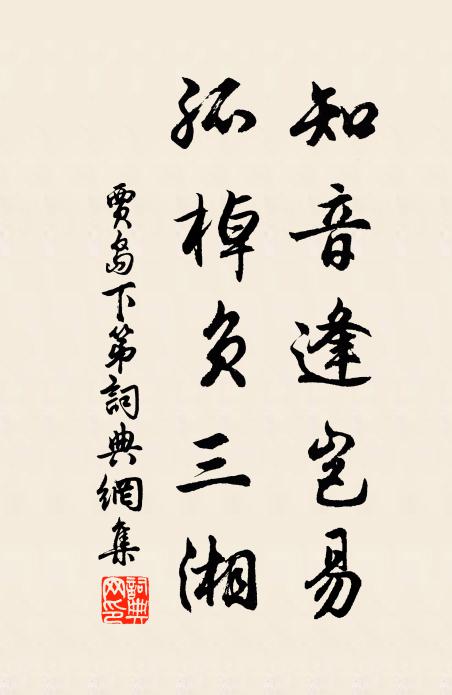 知音逢岂易
孤棹负三湘
賈島下第詞典網集
詞典網印